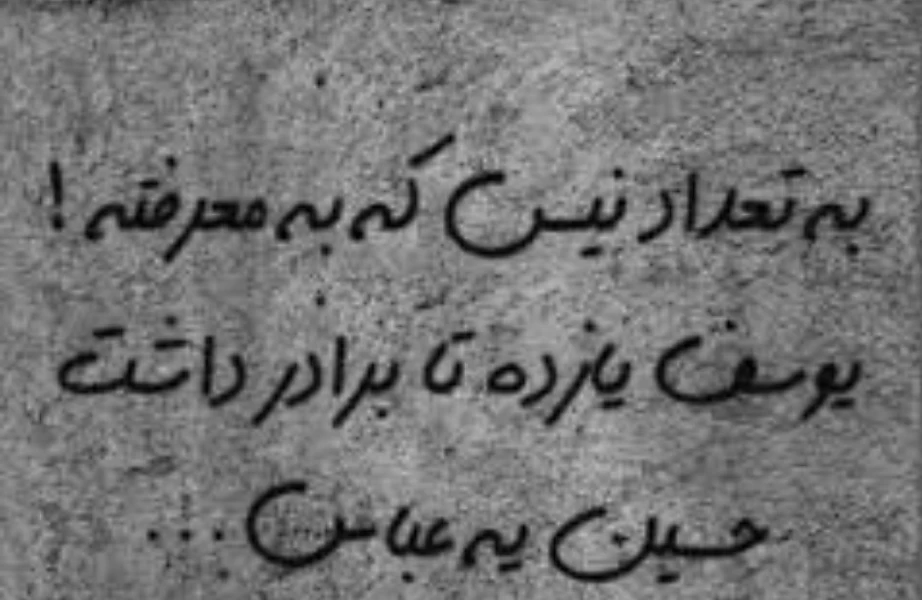 به تعداد نیس که به معرفته !
یوسف یازده تا برادر داشت
حسین یه عباس ...